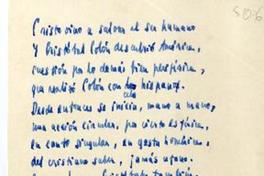 506
Cristo vino a salvar al ser humano
Y Cristóbal Colón descubrió América,
cuestión por lo demás bien periférica,
que realizó Colón con celo hispano.
Desde entonces se inicia, mano a mano,
una acción circular, por cierto esférica,
en canto singular, en gesta homérica,
del cristiano saber, jamás ufano.